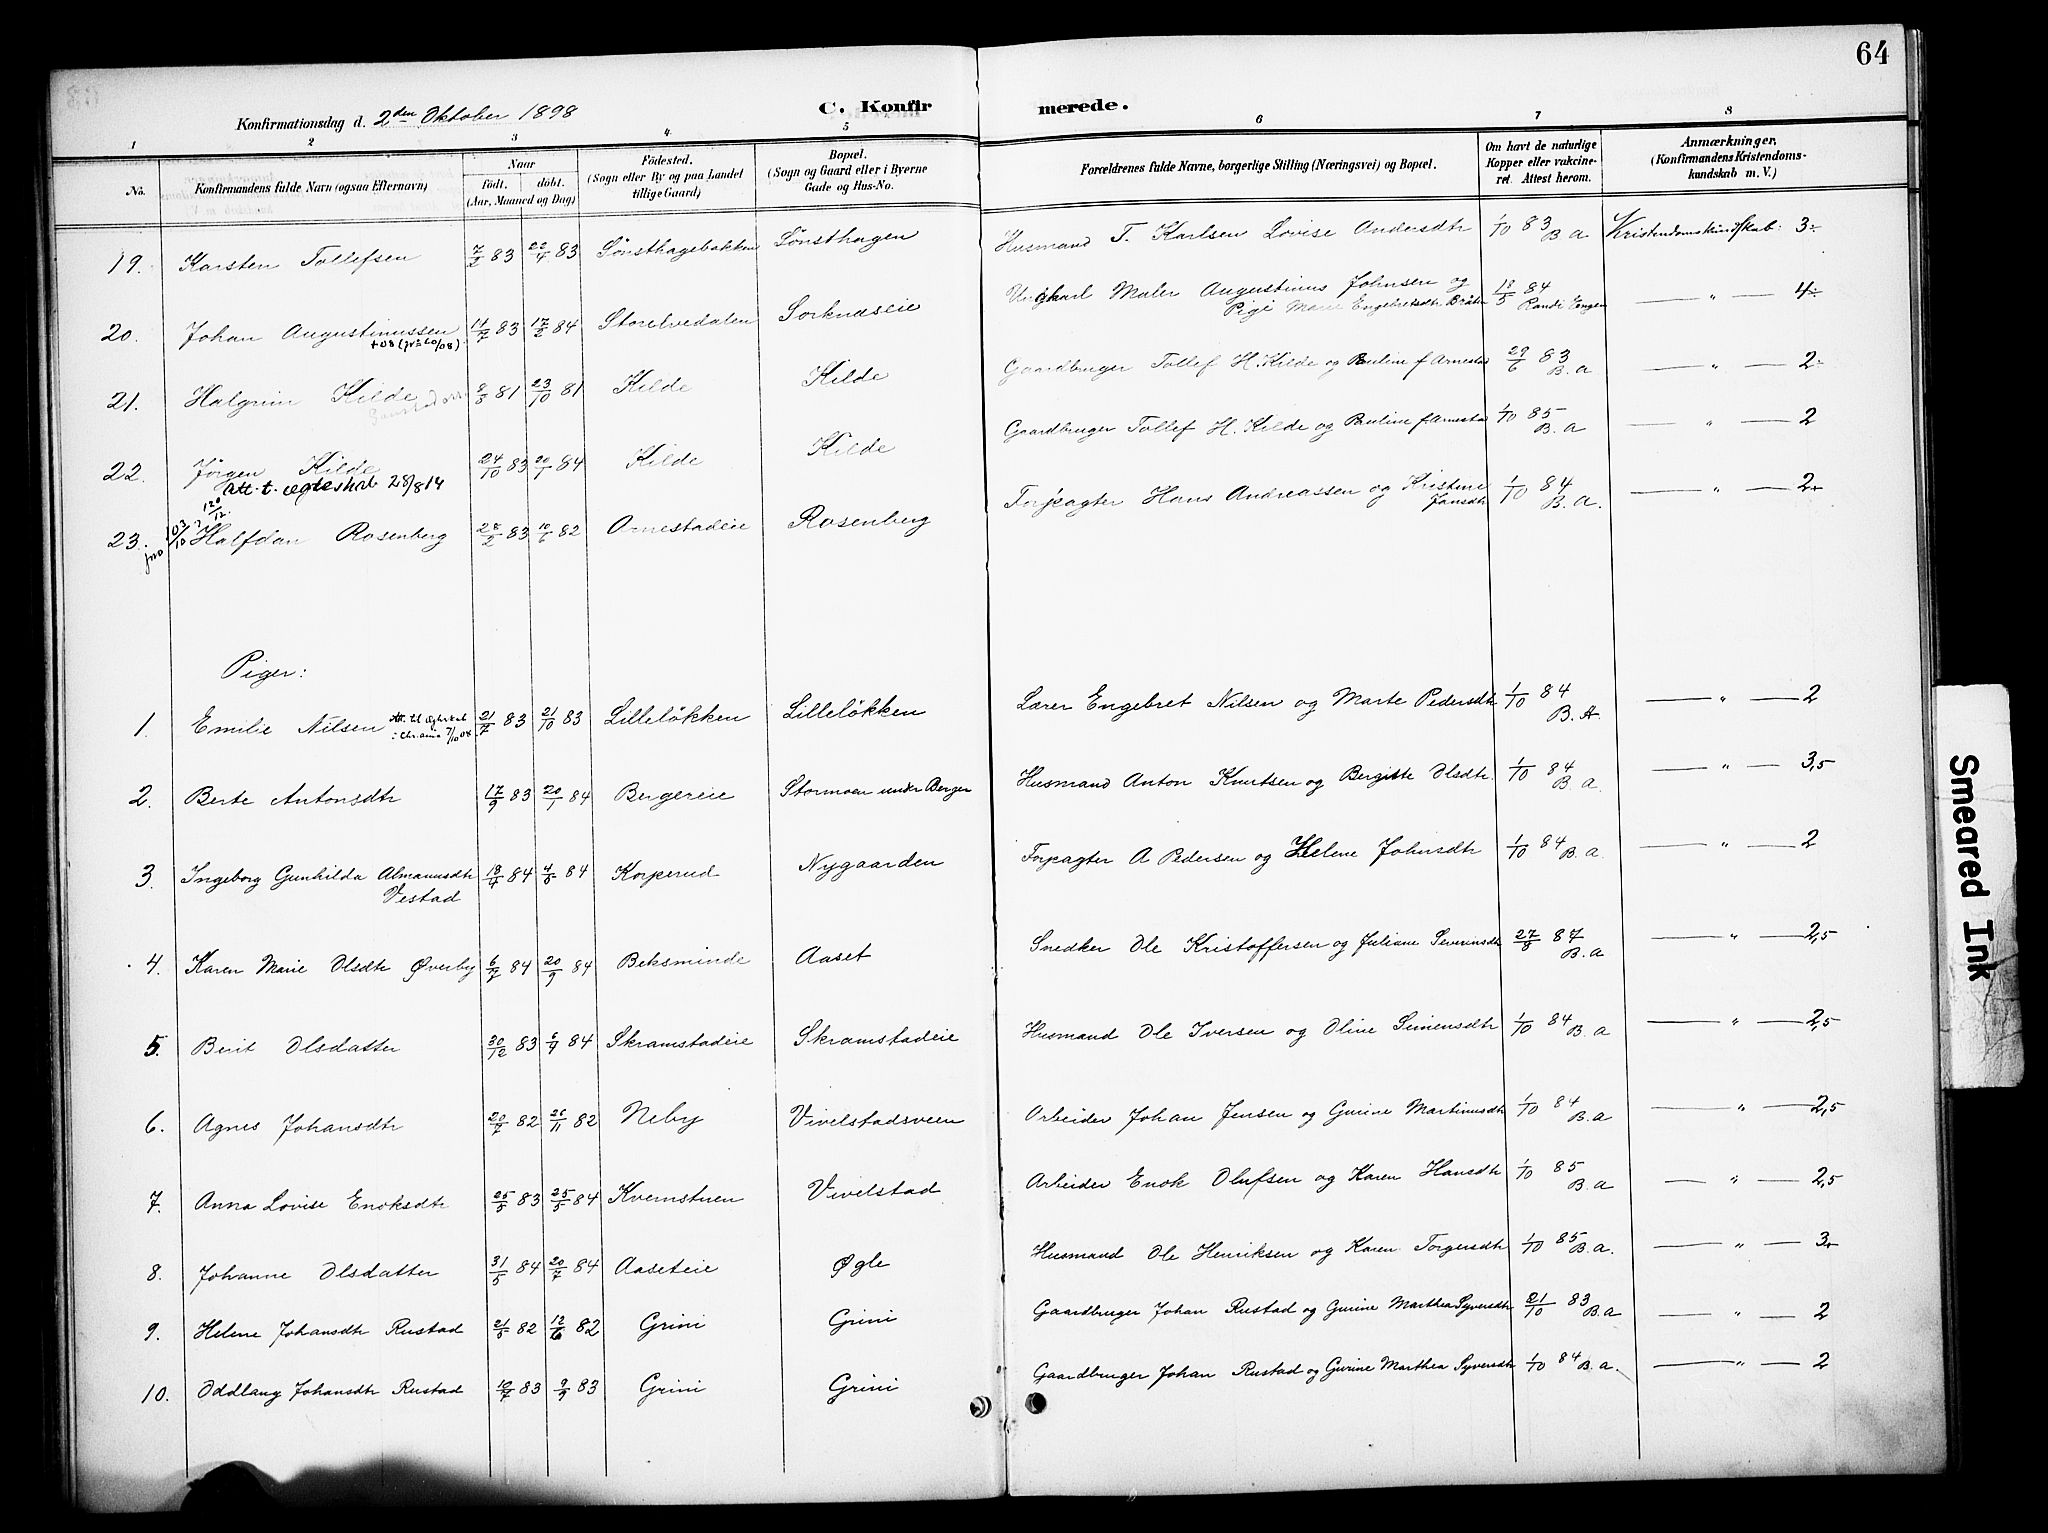 64
Konfirmationsdag d. 2den Oktober 1898
C. Konfirmerede.
1 2 3 4 5 6 7 8
No.
Konfirmandens fulde Navn (ogsaa Efternavn)
Naar
Födt. döbt.
(Aar, Maaned og Dag)
Födested.
(Sogn eller By og paa Landet
tillige Gaard)
Bopæl.
(Sogn og Gaard eller i Byerne
Gade og Hus-No.
Forældrenes fulde Navne, borgerlige Stilling (Næringsvei) og Bopæl.
Om havt de naturlige
Kopper eller vakcine-
ret. Attest herom.
Anmærkninger,
(Konfirmandens Kristendoms-
kundskab m. V.)
19. Karsten Tollefsen 7/2 83 22/4 83 Sönsthagebakken Sönsthagen Husmand T. Karlsen Lovise Andersdtr 1/10 83 B a Kristendomskundskab: 3÷
20. Johan Augustinussen 11/7 83 17/2 84 Storelvedalen Sorknæseie Ungkarl Maler Augustinus Johnsen og 18/5 84 — " — 4÷
Pige Marie Engebretsdtr Bråten Randi Engen
21. Halgrim Kilde 81 23/10 81 Kilde Kilde Gaardbruger Tollef H. Kilde og Pauline f Arnestad 29/6 83 B. a — " — 2÷
22. Jörgen Kilde 24/10 83 20/1 84 Kilde Kilde Gaardbruger Tollef H. Kilde og Pauline f Arnestad 1/10 85 B. a — " — 2
Att. t. ægteskab 28/8 14
23. Halfdan Rosenberg 28/2 83 82 Ornestadeie Rosenberg Torpagter Hans Andreassen og Kristine 1/10 84 B. a. — " — 2÷
Jansdtr
Piger:
1. Emilie Nilsen 21/7 83 21/10 83 Lilleløkken Lilleløkken Lærer Engebret Nilsen og Marte Pedersdtr 1/10 84 B. A. — " — 2
2. Berte Antonsdtr 17/9 83 20/1 84 Bergereie Stormoen under Berger Husmand Anton Knutsen og Bergitte Olsdtr. 1/10 84 B. a. — " — 3,5
3. Ingeborg Gunhilda Almanusdtr 84 84 Korperud Nygaarden Torpagter A Pedersen og Helene Johnsdtr 1/10 84 B. a. — " — 2
Vestad
4. Karen Marie Olsdtr Øverby 6/7 84 20/9 84 Beksminde Aaset Snedker Ole Kristoffersen og Juliane Severinsdtr 27/8 87 B. a — " — 2,5
5. Berit Olsdatter 30/12 83 6/9 84 Skramstadeie Skramstadeie Husmand Ole Iversen og Oline Simensdtr 1/10 84 B. a — " — 2,5
6. Agnes Johansdtr 20/7 82 26/11 82 Neby Vivelstadsveen Arbeider Johan Jensen og Gurine Martinusdtr 1/10 84 B. a — " — 2,5
7. Anna Lovise Enoksdtr 25/5 83 25/5 84 Kvernstuen Vivelstad Arbeider Enok Olufsen og Karen Hansdtr 1/10 85 B. a — " — 2,5
8. Johanne Olsdatter 31/5 84 20/7 84 Aaseteie Øgle Husmand Ole Henriksen og Karen Torgersdtr 1/10 85 B. a. — " — 3÷
9. Helene Johansdtr Rustad 21/5 82 82 Grini Grini Gaardbruger Johan Rustad og Gurine Marthea Syversdtr 21/10 83 B. a — " — 2
10. Oddlaug Johansdtr Rustad 83 9/9 83 Grini Grini Gaardbruger Johan Rustad og Gurine Marthea Syversdtr 1/10 84 B. a. — " — 2
Smeared Ink